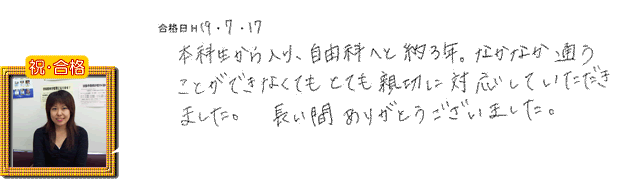 合格日 H19・7・17
本科生から入り、自由科へと約3年。なかなか通う
ことができなくてもとても親切に対応していただき
ました。 長い間ありがとうございました。
祝・合格